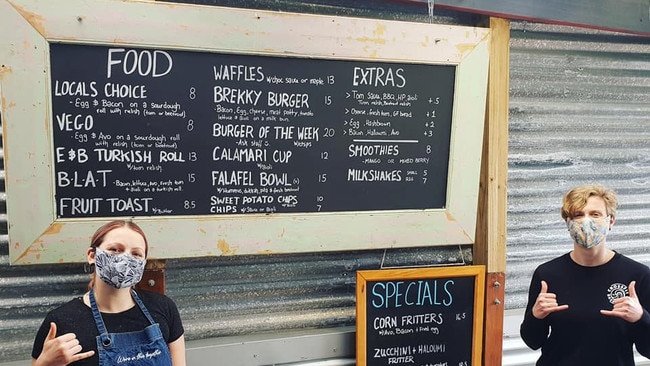 FOOD
LOCALS CHOICE 8
- Egg & Bacon on a sourdough
roll with relish (tom or beetroot)
VEGO 8
- Egg & Avo on a sourdough
roll with relish (tom or beetroot)
E&B TURKISH ROLL 13
w/tom relish
B·L·A·T - Bacon, lettuce, avo, fresh tom 15
FRUIT TOAST w/butter 8.5
WAFFLES w/choc sauce or maple 13
BREKKY BURGER 15
- Bacon, Egg, cheese, meat patty, tomato
lettuce & on a milk bun
BURGER OF THE WEEK 20
- Ask staff w/chips
CALAMARI CUP 12
FALAFEL BOWL 15
SWEET POTATO CHIPS 10
CHIPS 7
EXTRAS
> Tom Sauce, BBQ, HP, aioli
Tom relish, Beetroot relish +.5
> Cheese, fresh tom, GF bread +1
> Egg, Hashbrown +2
> Bacon, Haloumi, Avo +3
SMOOTHIES 8
- MANGO or MIXED BERRY
MILKSHAKES SMALL 5
REG 7
SPECIALS
CORN FRITTERS 16.5
w/Avo, Bacon + fried egg
ZUCCHINI + HALOUMI
FRITTER
We're in this together